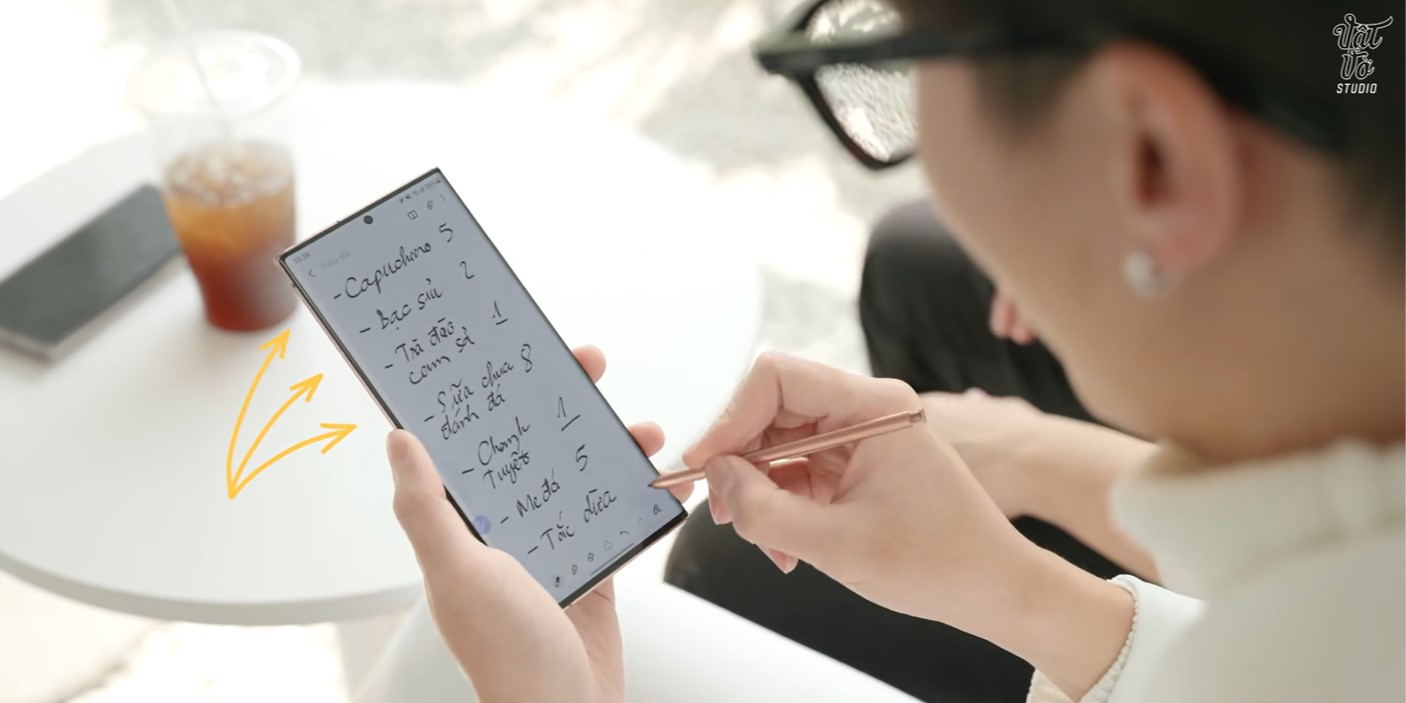 Vật
Vờ
STUDIO
-Capuchino 5
- Bạc sỉu 2
- Trà đào 1
cam sả
- Sữa chua 8
đánh đá
- Chanh 1
Tuyết
- Me đá 5
- Tắc dừa